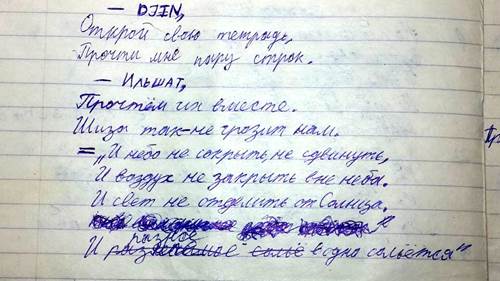 — DJIN,
Открой свою тетрадь,
Прочти мне пару строк.
— Ильшат,
Прочтём их вместе.
Шиза так-не грозит нам.
= „И небо не сокрыть, не сдвинуть,
И воздух не закрыть вне неба.
И свет не отделить от Солнца.
разное
И в одно сольётся"